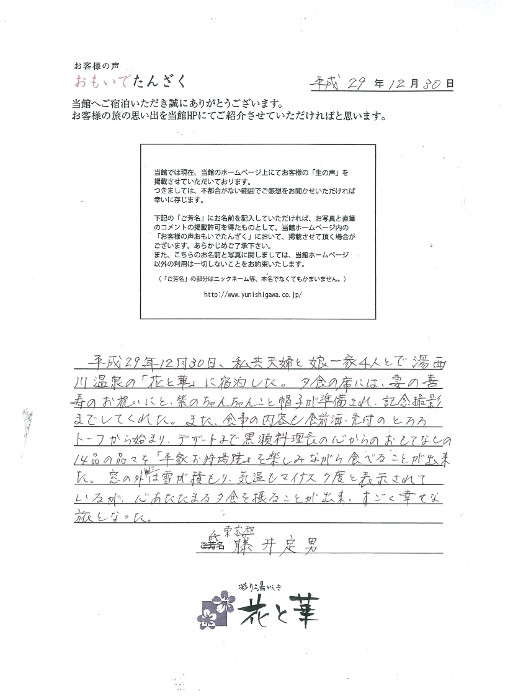 お客様の声
おもいでたんざく
平成 29 年 12 月 30 日
当館へご宿泊いただき誠にありがとうございます。
お客様の旅の思い出を当館HPにてご紹介させていただければと思います。
当館では現在、当館のホームページ上にてお客様の「生の声」を
掲載させていただいております。
つきましては、不都合がない範囲でご感想をお聞かせいただければ
幸いに存じます。
下記の「ご芳名」にお名前を記入していただければ、お写真と直筆
のコメントの掲載許可を得たものとして、当館ホームページ内の
「お客様の声おもいでたんざく」において、掲載させて頂く場合が
ございます。あらかじめご了承下さい。
また、こちらのお名前と写真に関しましては、当館ホームページ
以外の利用は一切しないことをお約束いたします。
（「ご芳名」の部分はニックネーム等、本名でなくてもかまいません。）
http://www.yunishigawa.co.jp/
平成29年12月30日、私共夫婦と娘一家4人とで湯西
川温泉の「花と華」に宿泊した。夕食の席には、妻の喜
寿のお祝いにと、紫のちゃんちゃんこと帽子が準備され、記念撮影
までしてくれた。また、食事の内容も食前酒、先付のとろろ
トーフから始まり、デザートまで黒瀬料理長の心からのおもてなしの
14品の品々を「平家お狩場焼」を楽しみながら食べることが出来
た。窓の外には雪が積もり、気温もマイナス7度と表示されて
いるが、心あたたまる夕食を摂ることが出来、すごく幸せな
旅となった。
東京都
ご芳名 藤井定男
彩り湯かしき
花と華